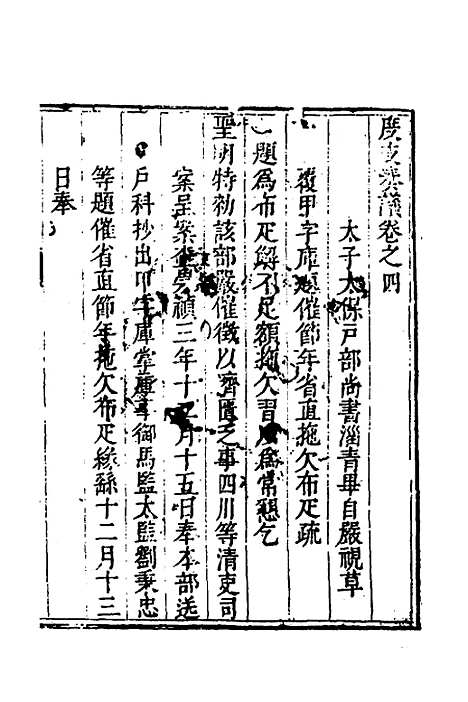 度支奏議卷之四
太子太保戸部尚書淄青畢自嚴視草
覆甲字庫題催節年省直拖欠布疋疏
題爲布疋觧不足額拖欠習爲常懇乞
聖明特勑該部嚴催徵以濟匱乏事四川等清吏司
案呈案崇禎三年十二月十五日奉本部送
戸科抄出甲字庫掌庫事御馬監太監劉秉忠
等題催省直節年拖欠布疋緣繇十二月十三
日奉